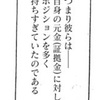 つまり彼らは
自身の元金(証拠金)に対し
ポジションを多く
持ちすぎていたのである